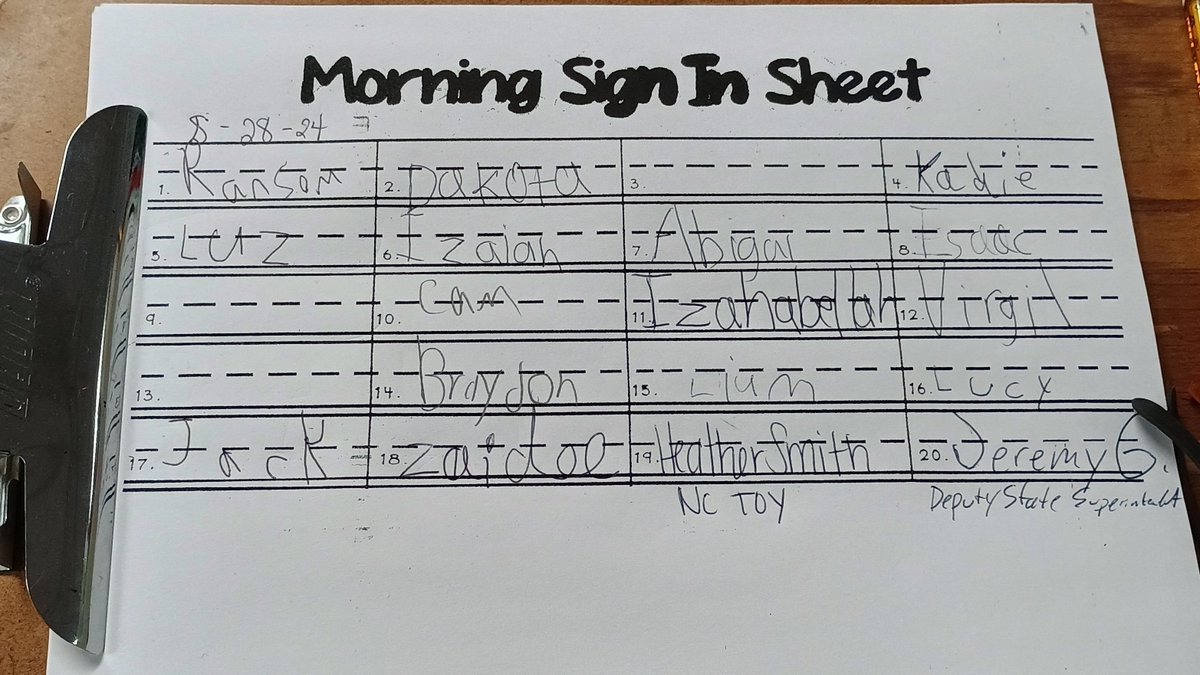 Morning Sign In Sheet
8-28-24
1. Ransom 2. Dakota 3. 4. Kadie
5. Luz 6. Izaiah 7. Abigai 8. Isaac
9. 10. Cam 11. Izahabelah 12. Virgil
13. 14. Braydon 15. Lium 16. Lucy
17. Jack 18. zaidoe 19. Heather Smith 20. Jeremy G.
NC TOY Deputy State Superintendent